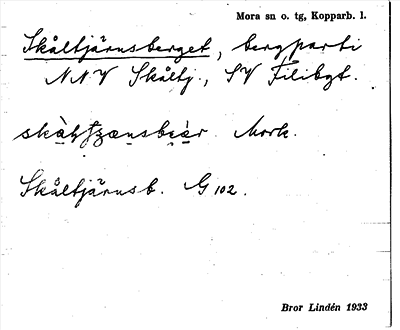 Mora sn o. tg, Kopparb. l.
Skåltjärnsberget, bergparti
NNV Skåltj., SV Filibgt.
Mork.
Skåltjärnsb. G 102.
Bror Lindén 1933